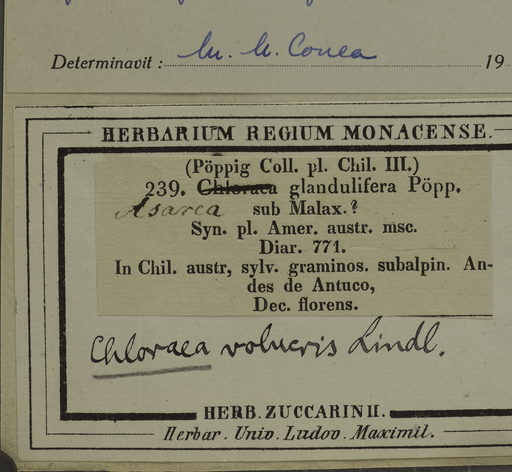 Determinavit : M. N. Correa 19
HERBARIUM REGIUM MONACENSE.
(Pöppig Coll. pl. Chil. III.)
239. Chloraea glandulifera Pöpp.
Asarca sub Malax.?
Syn. pl. Amer. austr. msc.
Diar. 771.
In Chil. austr, sylv. graminos. subalpin. An-
des de Antuco,
Dec. florens.
Chloraea volucris Lindl.
HERB. ZUCCARINII.
Herbar. Univ. Ludov. Maximil.